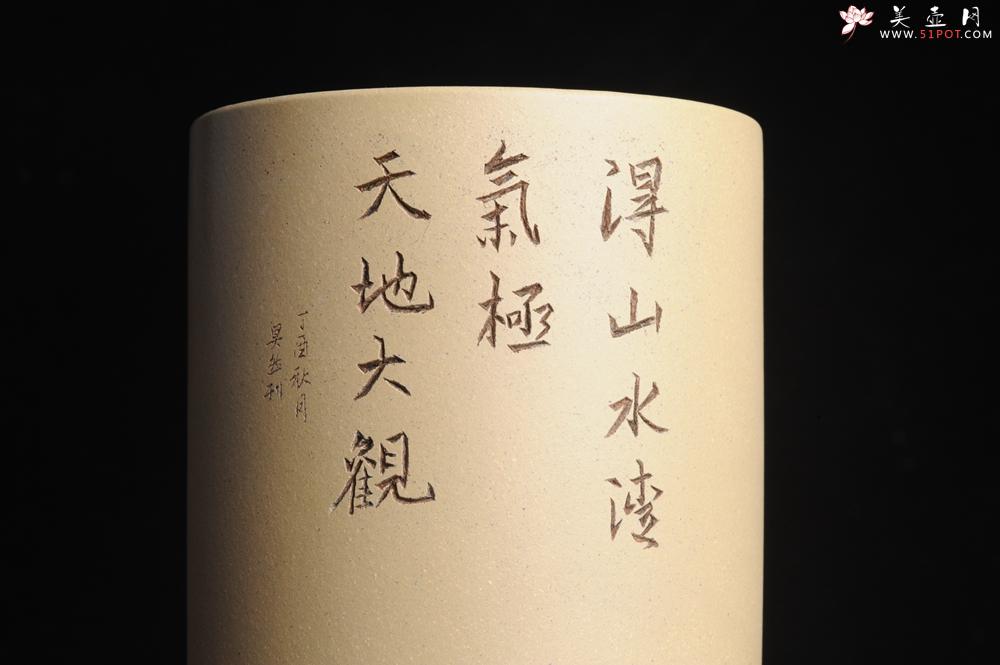 美壶网
WWW.51POT.COM
得山水清
氣極
天地大觀
丁酉秋月
刊